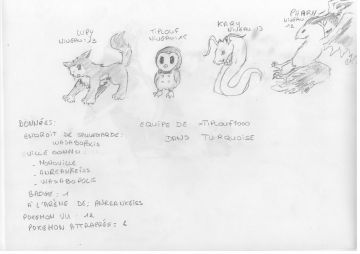 LUPY
NIVEAU: 13
TIPLOUF
NIVEAU: 15
KARY
NIVEAU 13
PHARY
NIVEAU
12
DONNÉES:
ENDROIT DE SAUVEGARDE:
WASABOPOLIS
VILLE CONNU:
- MONOVILLE
- ANREANKEISS
- WASABOPOLIS
BADGE: 1
A L'ARÈNE DE: ANREANKEISS
POKEMON VU: 12
POKEMON ATTRAPÉES:
EQUIPE DE -TIPLOUF1000
DANS TURQUOISE